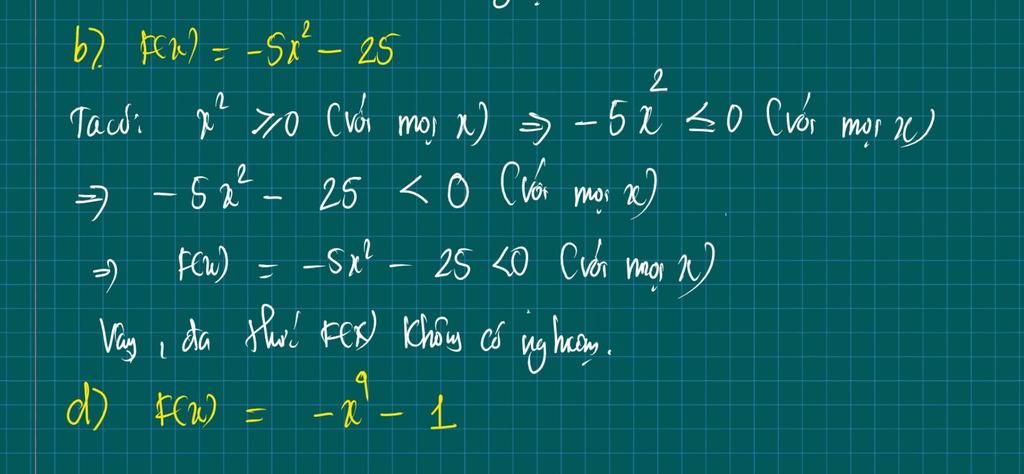 b) F(x) = -5x² - 25
Ta có: x² ≥ 0 (với mọi x) ⇒ -5x² ≤ 0 (với mọi x)
⇒ -5x² - 25 < 0 (với mọi x)
⇒ F(x) = -5x² - 25 < 0 (với mọi x)
Vậy, đa thức F(x) không có nghiệm.
d) F(x) = -x⁹ - 1